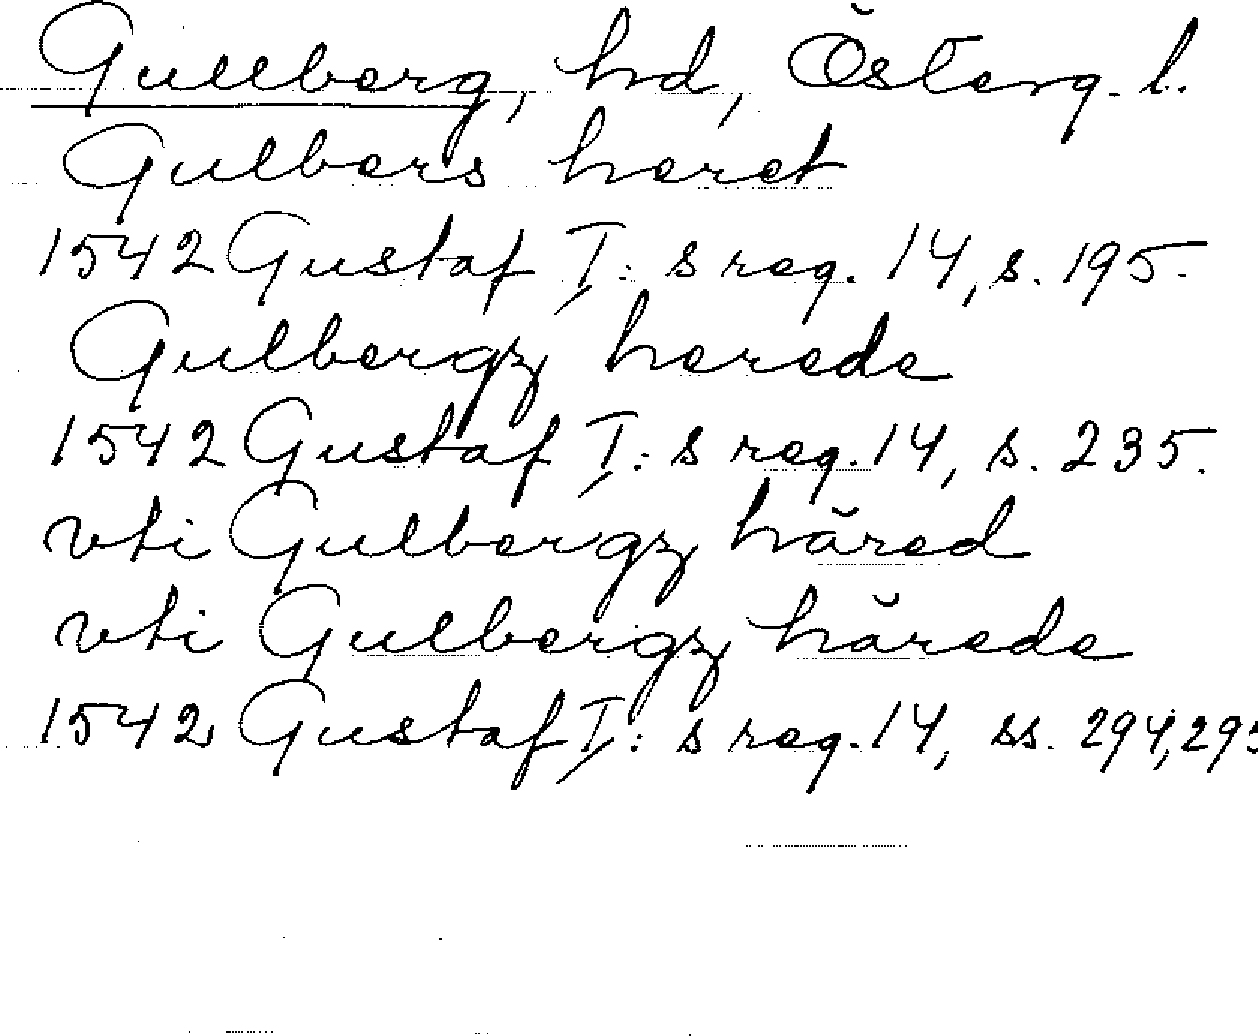 Gullberg, hd, Österg. l.
Gulbers heret
1542 Gustaf I:s reg. 14, s. 195.
Gulbergz herede
1542 Gustaf I:s reg. 14, s. 235.
vti Gulbergz häred
vti Gulbergz härede
1542 Gustaf I:s reg. 14, ss. 294, 295